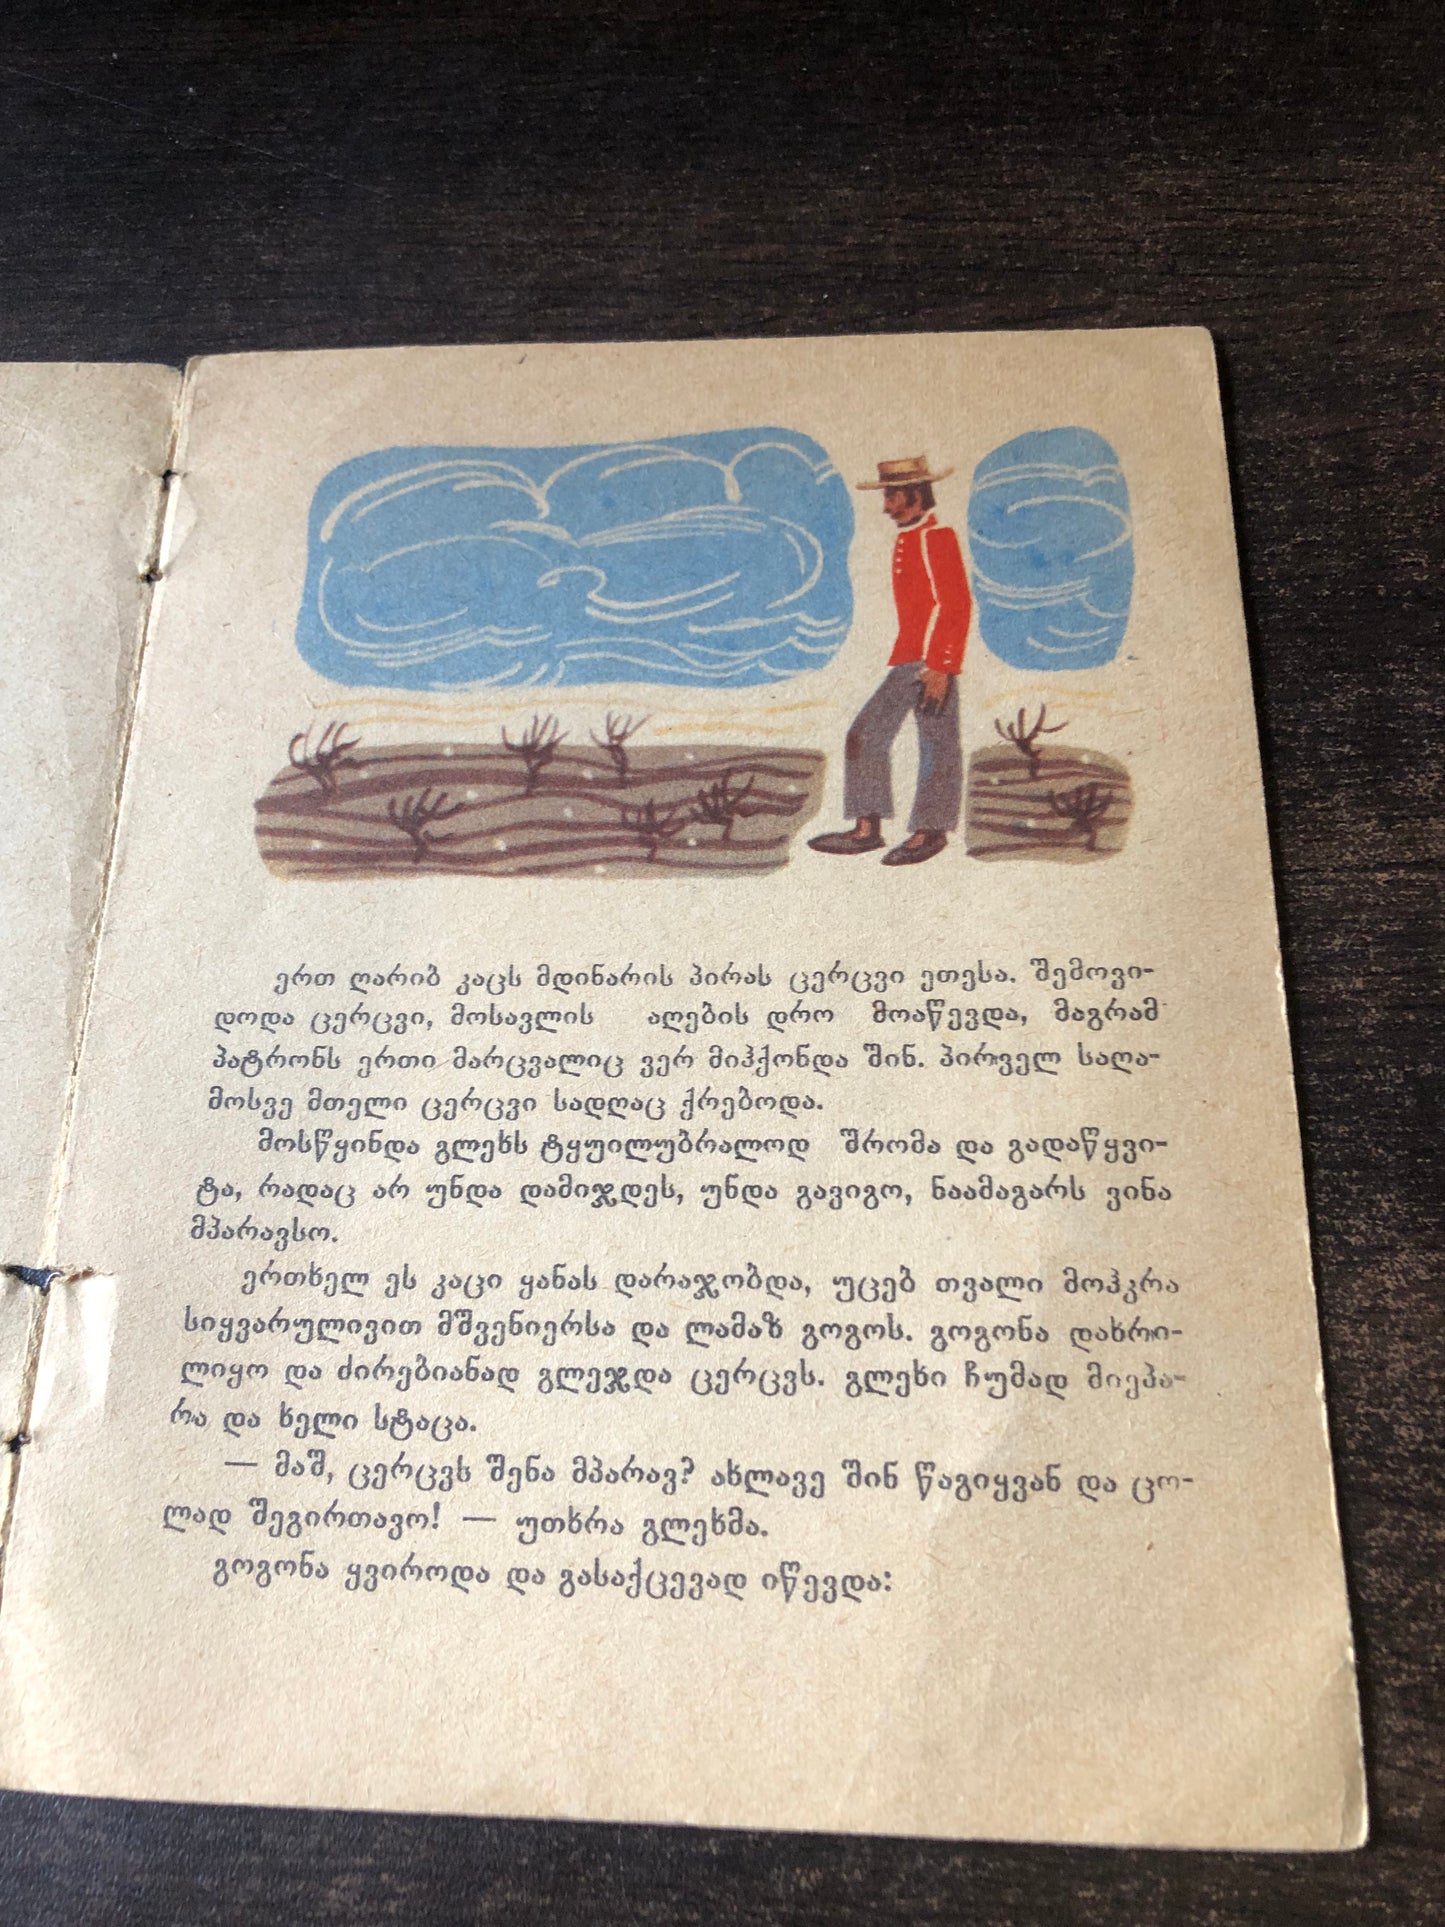 ერთ ღარიბ კაცს მდინარის პირას ცერცვი ეთესა. შემოვი-
დოდა ცერცვი, მოსავლის აღების დრო მოაწევდა, მაგრამ
პატრონს ერთი მარცვალიც ვერ მიჰქონდა შინ. პირველ საღა-
მოსვე მთელი ცერცვი სადღაც ქრებოდა.
მოსწყინდა გლეხს ტყუილუბრალოდ შრომა და გადაწყვი-
ტა, რადაც არ უნდა დამიჯდეს, უნდა გავიგო, ნაამაგარს ვინა
მპარავსო.
ერთხელ ეს კაცი ყანას დარაჯობდა, უცებ თვალი მოჰკრა
სიყვარულივით მშვენიერსა და ლამაზ გოგოს. გოგონა დახრი-
ლიყო და ძირებიანად გლეჯდა ცერცვს. გლეხი ჩუმად მიეპა-
რა და ხელი სტაცა.
— მაშ, ცერცვს შენა მპარავ? ახლავე შინ წაგიყვან და ცო-
ლად შეგირთავო! — უთხრა გლეხმა.
გოგონა ყვიროდა და გასაქცევად იწევდა: